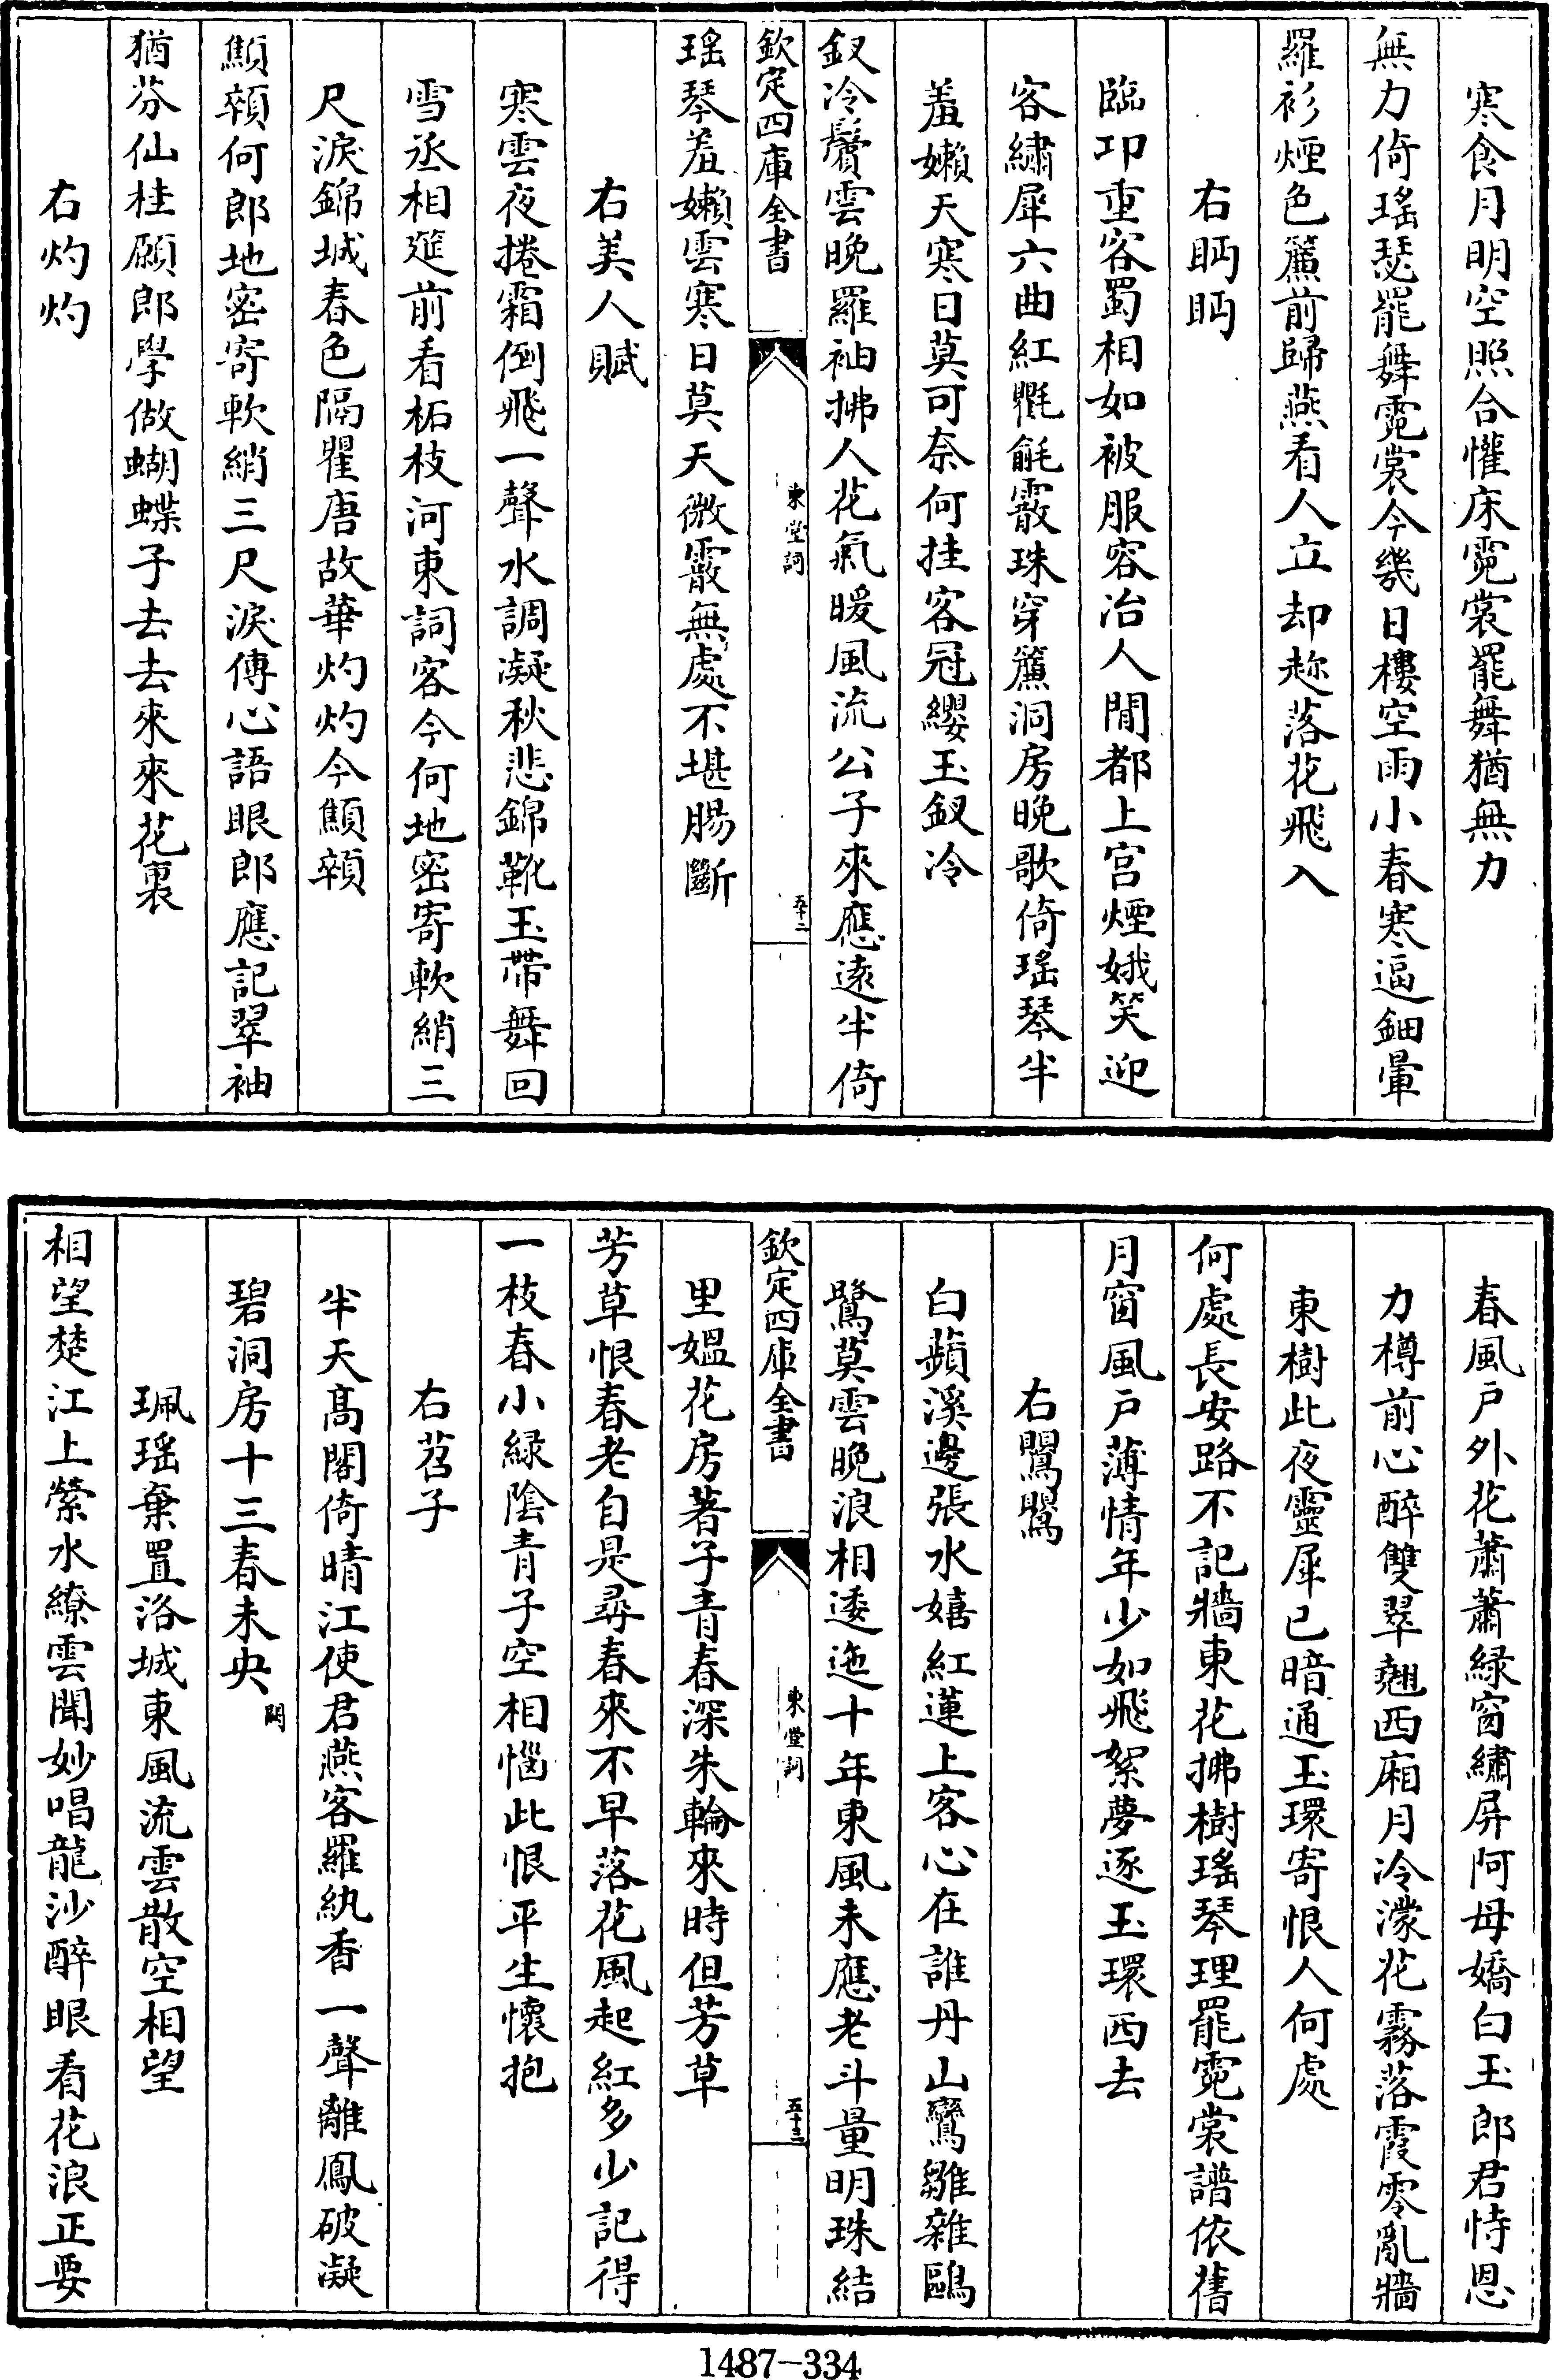 寒食月明空照合懽床霓裳罷舞猶無力
無力倚瑤瑟罷舞霓裳今幾日樓空雨小春寒逼鈿暈
羅衫煙色簾前歸燕看人立却趂落花飛入
右眄眄
臨卭重客蜀相如被服容冶人閒都上宫煙娥笑迎
客繡犀六曲紅氍毹霰珠穿簾洞房晚歌倚瑤琴半
羞嬾天寒日莫可奈何挂客冠纓玉釵冷
釵冷鬢雲晚羅袖拂人花氣暖風流公子來應逺半倚
欽定四庫全書
東堂詞
五十二
瑤琴羞嬾雲寒日莫天微霰無處不堪腸斷
右美人賦
寒雲夜捲霜倒飛一聲水調凝秋悲錦靴玉帶舞回
雪丞相筵前看柘枝河東詞客今何地密寄軟綃三
尺淚錦城春色隔瞿唐故華灼灼今顦顇
顦顇何郎地密寄軟綃三尺淚傳心語眼郎應記翠袖
猶芬仙桂願郎學做蝴蝶子去去來來花裏
右灼灼
春風户外花蕭蕭緑窗繡屏阿母嬌白玉郎君恃恩
力樽前心醉雙翠翹西廂月冷濛花霧落霞零亂牆
東樹此夜靈犀已暗通玉環寄恨人何處
何處長安路不記牆東花拂樹瑤琴理罷霓裳譜依舊
月窗風户薄情年少如飛絮夢逐玉環西去
右鸎鸎
白蘋溪邊張水嬉紅蓮上客心在誰丹山鸞雛雜鷗
鷺莫雲晚浪相逶迤十年東風未應老斗量明珠結
欽定四庫全書
東堂詞
五十三
里媼花房著子青春深朱輪來時但芳草
芳草恨春老自是尋春來不早落花風起紅多少記得
一枝春小緑陰青子空相惱此恨平生懷抱
右苕子
半天髙閣倚晴江使君燕客羅紈香一聲離鳳破凝
碧洞房十三春未央闕
珮瑶棄置洛城東風流雲散空相望
相望楚江上縈水繚雲聞妙唱龍沙醉眼看花浪正要
1487-334